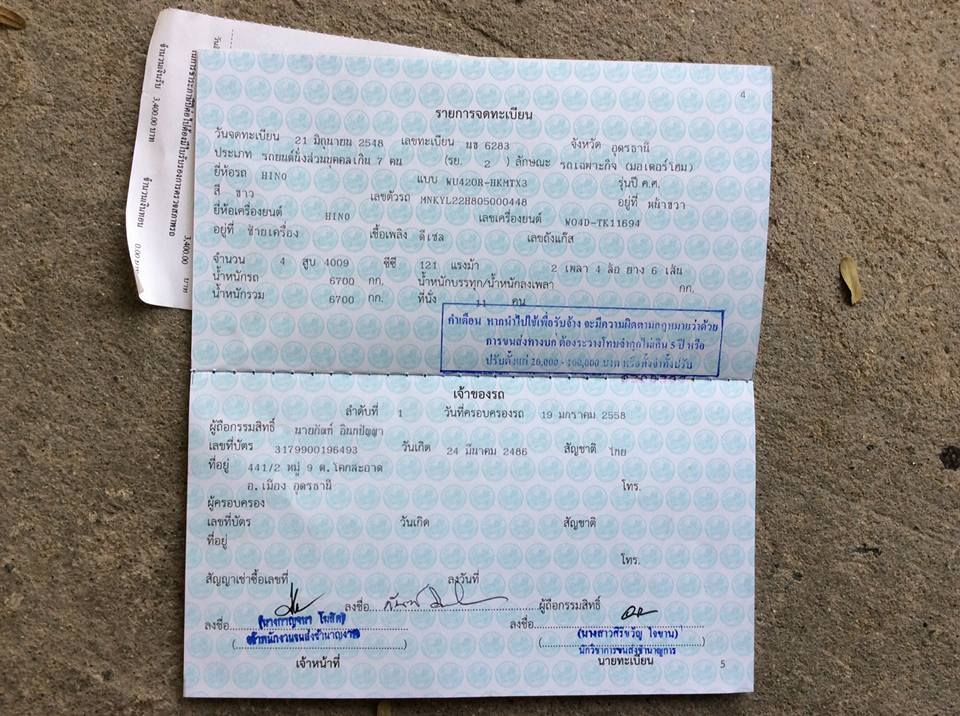 4
รายการจดทะเบียน
วันจดทะเบียน 21 มิถุนายน 2548 เลขทะเบียน นข 6283 จังหวัด อุดรธานี
ประเภท รถยนต์นั่งส่วนบุคคลเกิน 7 คน (รย. 2 ) ลักษณะ รถเฉพาะกิจ (มอเตอร์โฮม)
ยี่ห้อรถ HINO แบบ WU420R-HKMTX3 รุ่นปี ค.ศ.
สี ขาว เลขตัวรถ MNKYL22H805000448 อยู่ที่ หน้าขวา
ยี่ห้อเครื่องยนต์ HINO เลขเครื่องยนต์ W04D-TK11694
อยู่ที่ ซ้ายเครื่อง เชื้อเพลิง ดีเซล เลขถังแก๊ส
จำนวน 4 สูบ 4009 ซีซี 121 แรงม้า 2 เพลา 4 ล้อ ยาง 6 เส้น
น้ำหนักรถ 6700 กก. น้ำหนักบรรทุก/น้ำหนักลงเพลา กก.
น้ำหนักรวม 6700 กก. ที่นั่ง 11 คน
คำเตือน หากนำไปใช้เพื่อรับจ้าง จะมีความผิดตามกฎหมายว่าด้วย
การขนส่งทางบก ต้องระวางโทษจำคุกไม่เกิน 5 ปี หรือ
ปรับตั้งแต่ 20,000 - 100,000 บาท หรือทั้งจำทั้งปรับ
เจ้าของรถ
ลำดับที่ 1 วันที่ครอบครองรถ 19 มกราคม 2558
ผู้ถือกรรมสิทธิ์ นายกัณฑ์ อินทปัญญา
เลขที่บัตร 3179900196493 วันเกิด 24 มีนาคม 2486 สัญชาติ ไทย
ที่อยู่ 441/2 หมู่ 9 ต.โคกสะอาด
อ.เมือง อุดรธานี โทร.
ผู้ครอบครอง
เลขที่บัตร วันเกิด สัญชาติ
ที่อยู่
โทร.
สัญญาเช่าซื้อเลขที่ ลงวันที่
ลงชื่อ ผู้ถือกรรมสิทธิ์
ลงชื่อ (นางกาญจนา โฆสิต) ลงชื่อ
(นางสาวศิริขวัญ ใจขาน)
เจ้าพนักงานขนส่งชำนาญงาน นักวิชาการขนส่งชำนาญการ
เจ้าหน้าที่ นายทะเบียน 5
จำนวนเงินรับ 3,400.00 บาท จำนวนเงินทอน 0.00 บาท
3,400.00 บาท